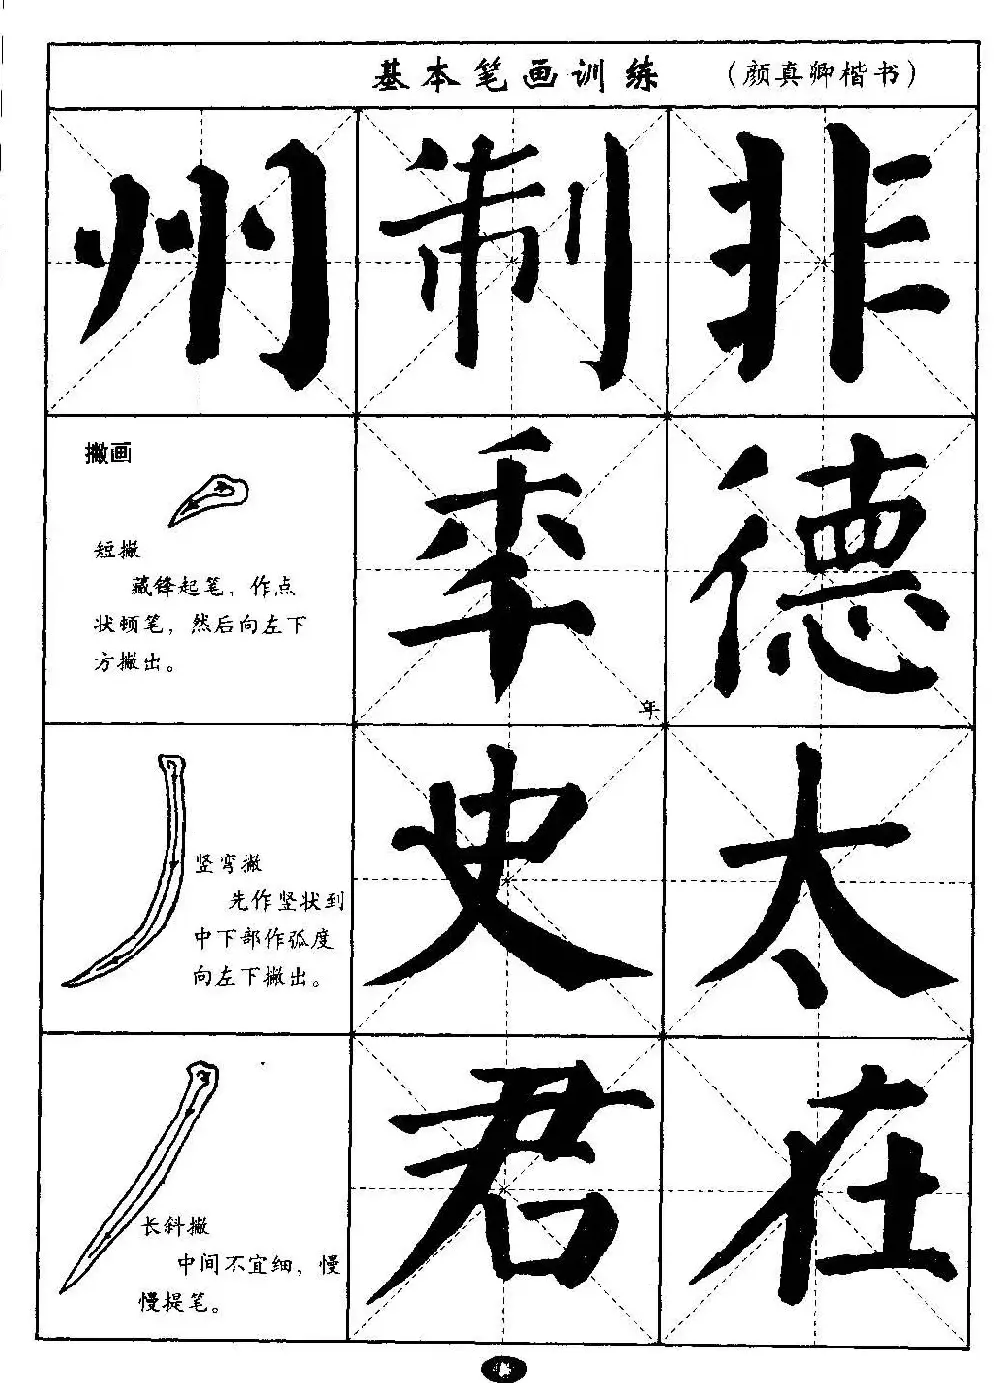 基本笔画训练 （颜真卿楷书）
州 制 非
撇画
短撇
藏锋起笔，作点
状顿笔，然后向左下
方撇出。
秊 德
年
竖弯撇
先作竖状到
中下部作弧度
向左下撇出。
史 太
长斜撇
中间不宜细，慢
慢提笔。
君 在